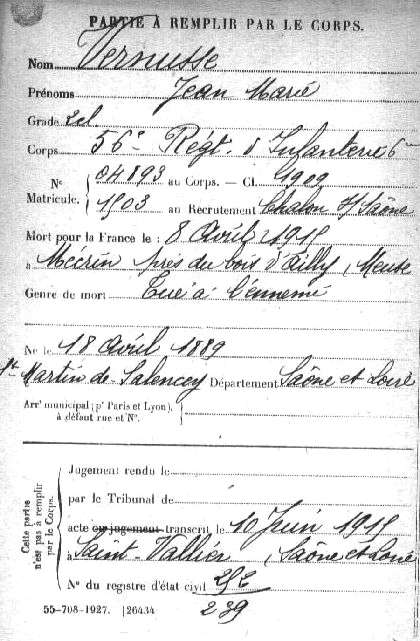 PARTIE À REMPLIR PAR LE CORPS.
Nom Vernusse
Prénoms Jean Marie
Grade 2cl
Corps 56e Régt. d'Infanterie 6e
N° 04893 au Corps. — Cl. 1909
Matricule. 1503 au Recrutement Chalon s/Saône
Mort pour la France le : 8 Avril 1915
à Mécrin près du bois d'Ailly, Meuse
Genre de mort Tué à l'ennemi
Né le 18 Avril 1889
St Martin-de-Salencey Département Saône et Loire
Arrt municipal (pr Paris et Lyon),
à défaut rue et N°.
Cette partie
n'est pas à remplir
par le Corps.
Jugement rendu le
par le Tribunal de
acte ou jugement transcrit le 10 Juin 1915
à Saint-Vallier, Saône et Loire
N° du registre d'état civil
55-708-1927. [26434
239